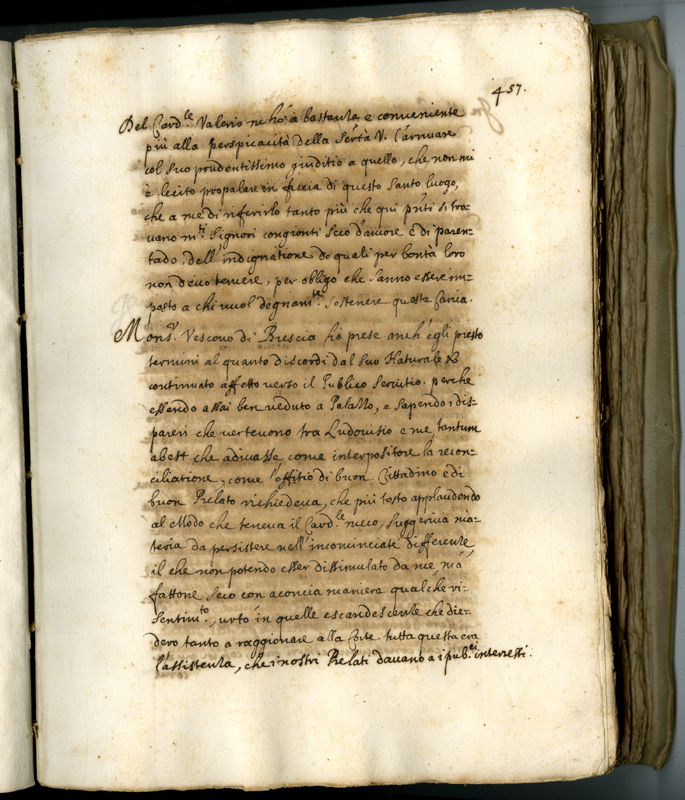 457.
Del Card.le Valerio ne hò à bastanza e conveniente
più alla perspicacità della Ser.tà V. l'arrivare
col suo prudentissimo giuditio a quello, che non mi
è lecito propalare in faccia di questo Santo luogo,
che a me di riferirlo tanto più che qui p'nti si tro-
vano m.ti Signori congionti Seco d'amore e di paren-
tado, dell'indignatione de quali per bontà loro
non devo temere, per obligo che sanno essere im-
posto a chi vuol degnam.te sostenere questa Carica.
Mons.r Vescovo di Brescia hà prese anch'egli presto
termini al quanto discordi dal suo Naturale &
continuato affetto verso il Publico Servitio. perche
essendo assai ben veduto a Palazzo, e sapendo i dis-
pareri che vertevono tra Ludovisio e me, tantum
abest che aiutasse come interpositore la recon-
ciliatione, come l'offitio di buon Cittadino e di
buon Prelato richiedeva, che più tosto applaudendo
al Modo che teneva il Card.le meco, suggeriva ma-
teria da persistere nell'incominciate differenze,
il che non potendo esser dissimulato da me, mà
fattone seco con aconcia maniera qualche ri-
sentim.to, urtò in quelle escandescenze che die-
dero tanto a raggionare alla Corte. tutta questa era
l'assistenza, che i nostri Prelati davano a i pub.ci interessi.